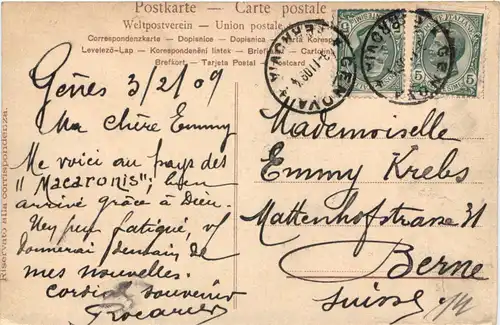 Postkarte - Carte postale
Weltpostverein - Union postale
Correspondenzkarte - Dopisnice - Dopisnica - Karta Korespo
Levelező-Lap - Korespondenční listek - Brief - Cartolin
Brefkort - Tarjeta Postal - Postcard
Riservato alla corrispondenza.
GENOVA
FERROVIA
5
5
Gênes 3/2/09
Ma chère Emmy
Me voici au pays des
"Macaronis", bien
arrivé grâce à Dieu.
Un peu fatigué, v/
donnerai demain de
mes nouvelles.
Cordial souvenir
Mademoiselle
Emmy Krebs
Mattenhofstrasse 31
Berne
Suisse